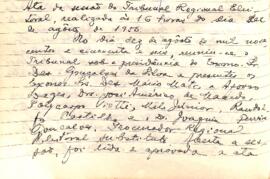 Ata da sessão do Tribunal Regional Elei-
toral, realizada às 16 horas do dia dez
de agosto de 1950
No dia dez de agosto de mil nove
centos e cincoenta e seis, reuniu-se o
Tribunal sob a presidência do Exmo. Sr.
Des. Gonçalves da Silva e presentes os
Exmos. Srs. Des. Mario Matos e Afonso
Lages, Drs. José Americo de Macedo,
Policarpo Viotti, Melo Junior,
Castilho e o Dr. Joaquim
Gonçalves, Procurador Regional
Eleitoral substituto. Aberta a ses-
são, foi lida e aprovada a ata